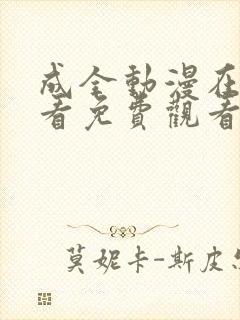 成全動漫在
看免費觀看
莫妮卡-斯皮